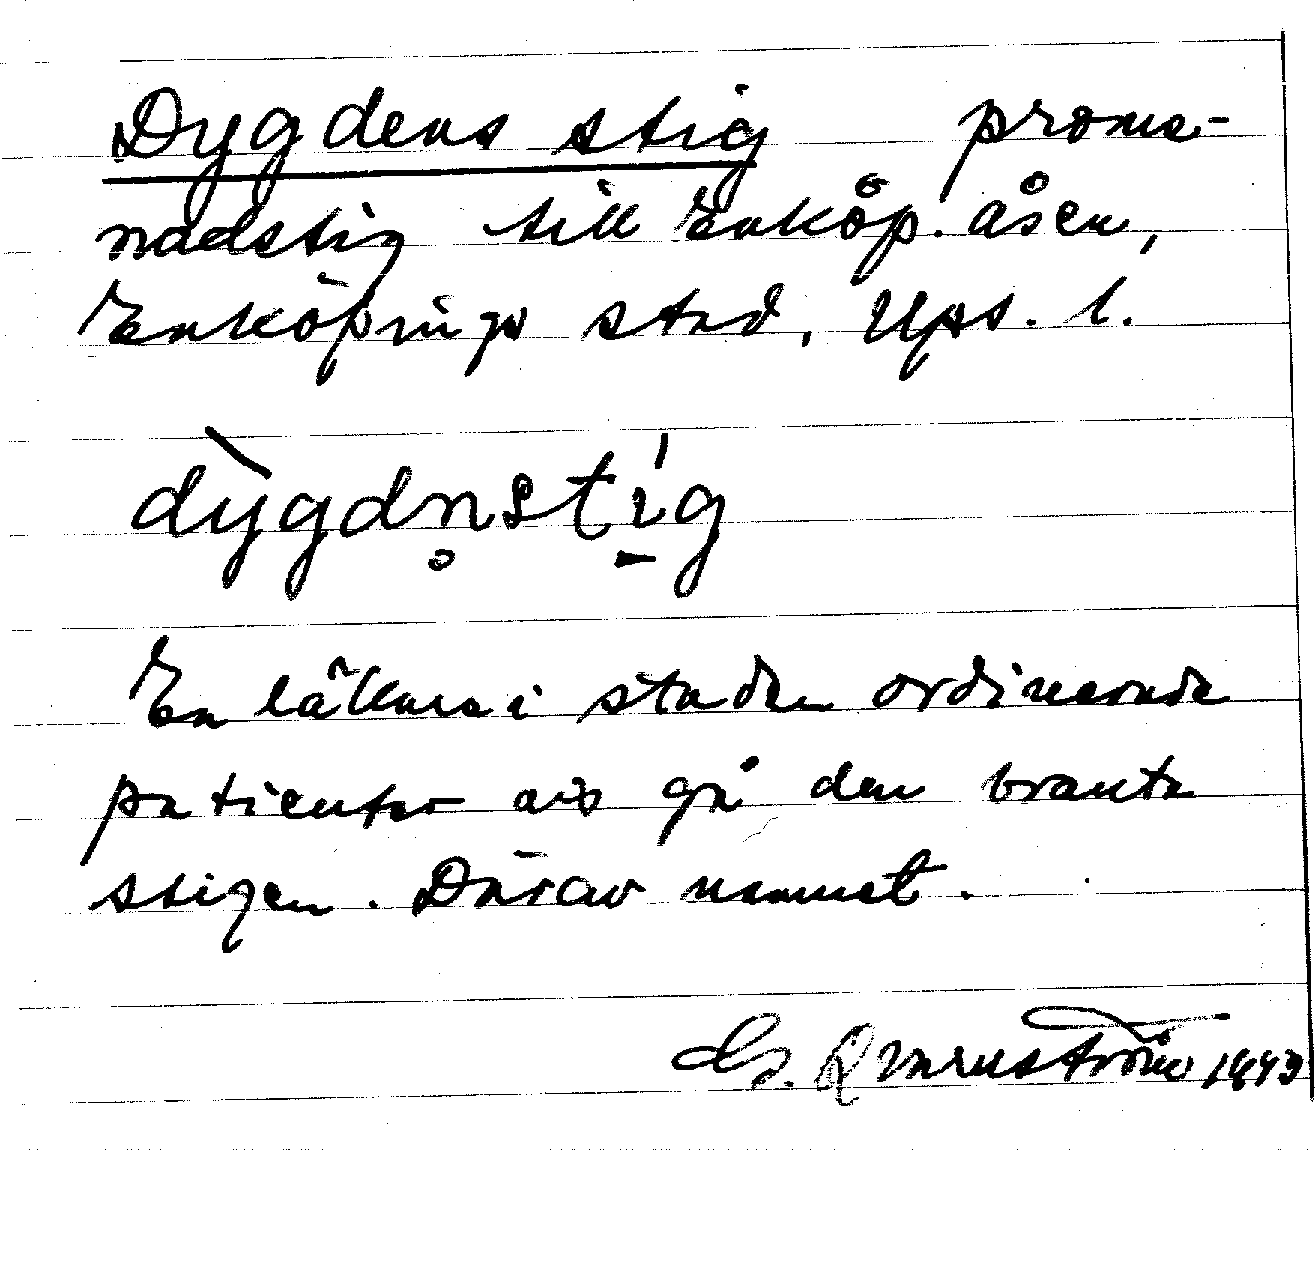 Dygdens stig prome-
nadstig till Enköp. åsen,
Enköpings stad, Upps. l.
dỳgdn̥stí̠g
En läkare i staden ordinerade
patienter att gå den branta
stigen. Därav namnet.
G. Qvarnström 1943